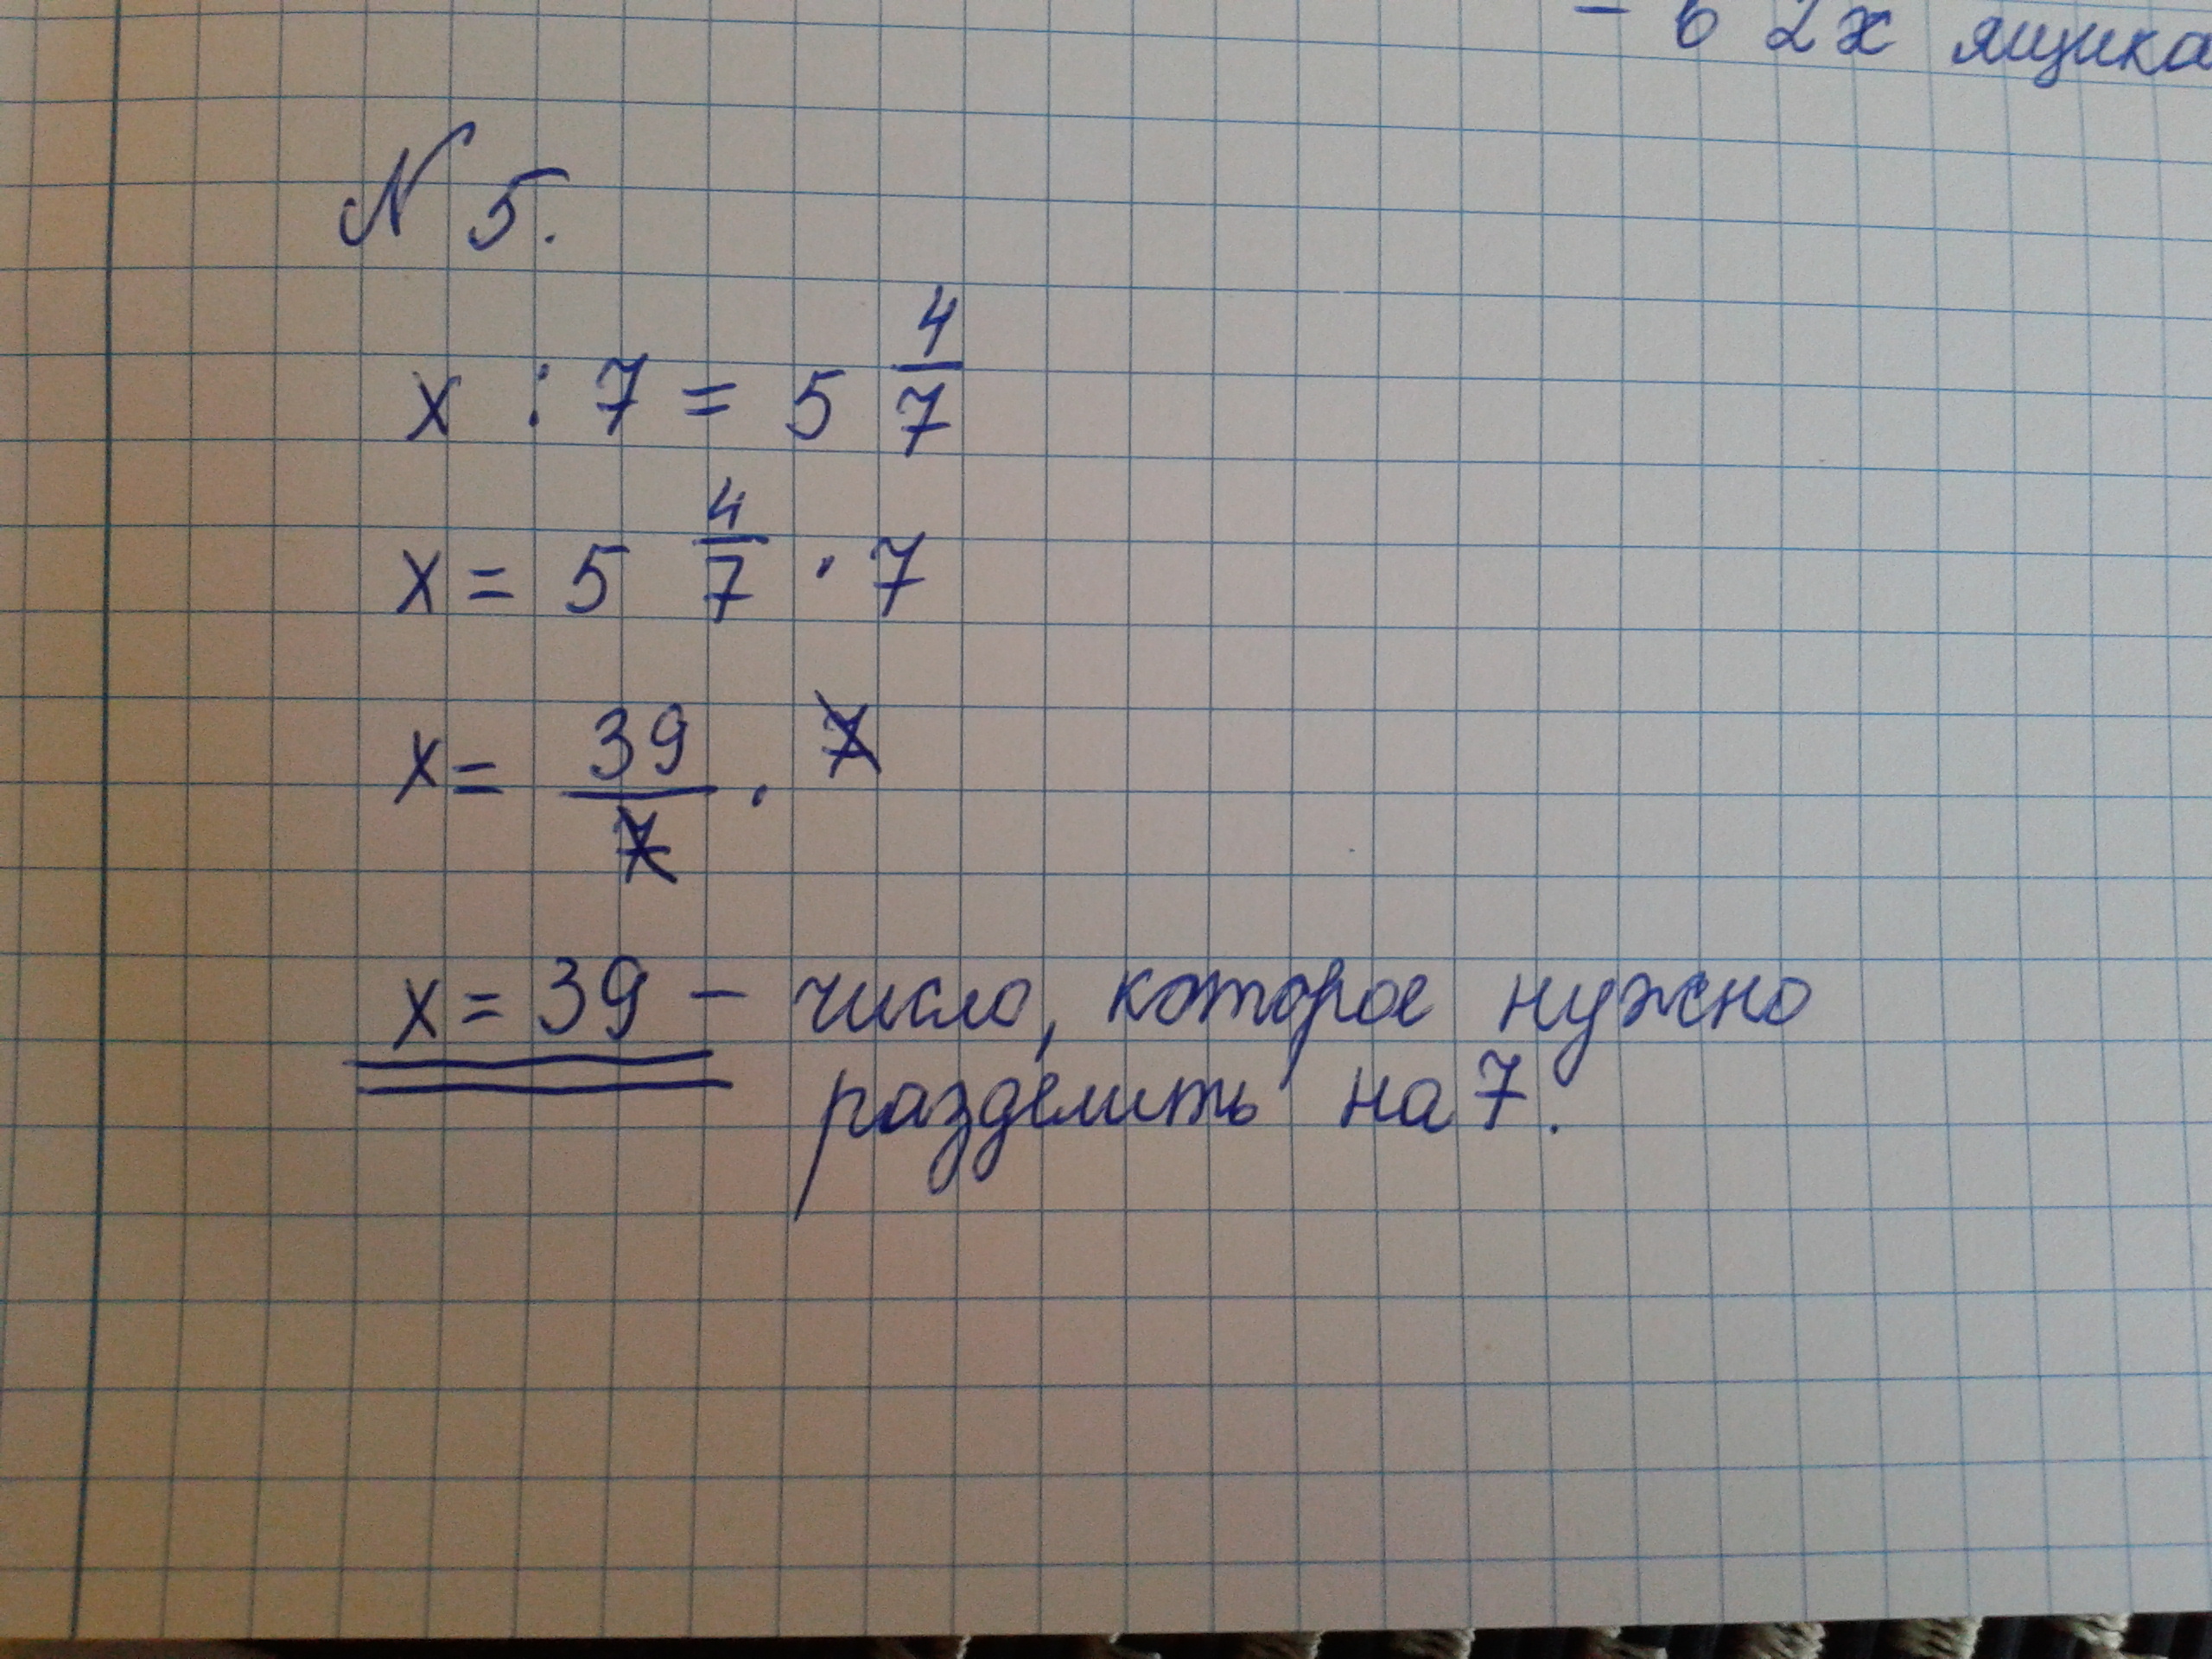 - в 2х ящика
N 5.
x : 7 = 5 4/7
x = 5 4/7 · 7
x = 39/7 · 7
x = 39 - число, которое нужно
разделить на 7.